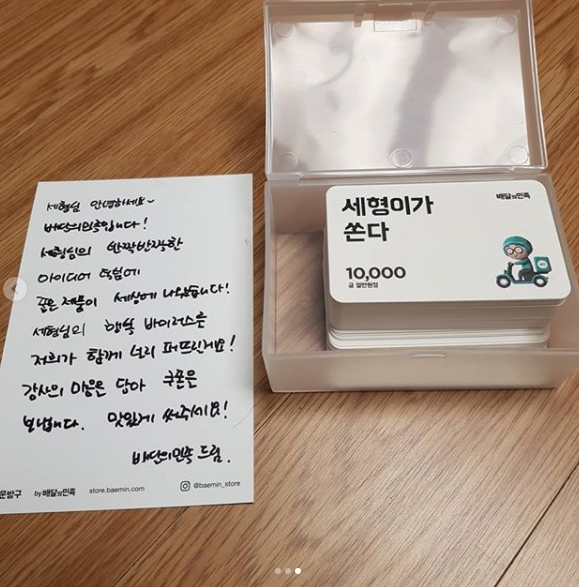 세형님 안녕하세요~
배달의민족입니다!
세형님의 반짝반짝한
아이디어 덕분에
좋은 제품이 세상에 나왔습니다!
세형님의 행복 바이러스를
저희가 함께 널리 퍼뜨릴게요!
감사의 마음을 담아 쿠폰을
보냅니다. 맛있게 써주세요!
배달의민족 드림.
문방구 by 배달의민족 store.baemin.com @baemin_store
세형이가
쏜다
배달의민족
10,000
금 일만원정